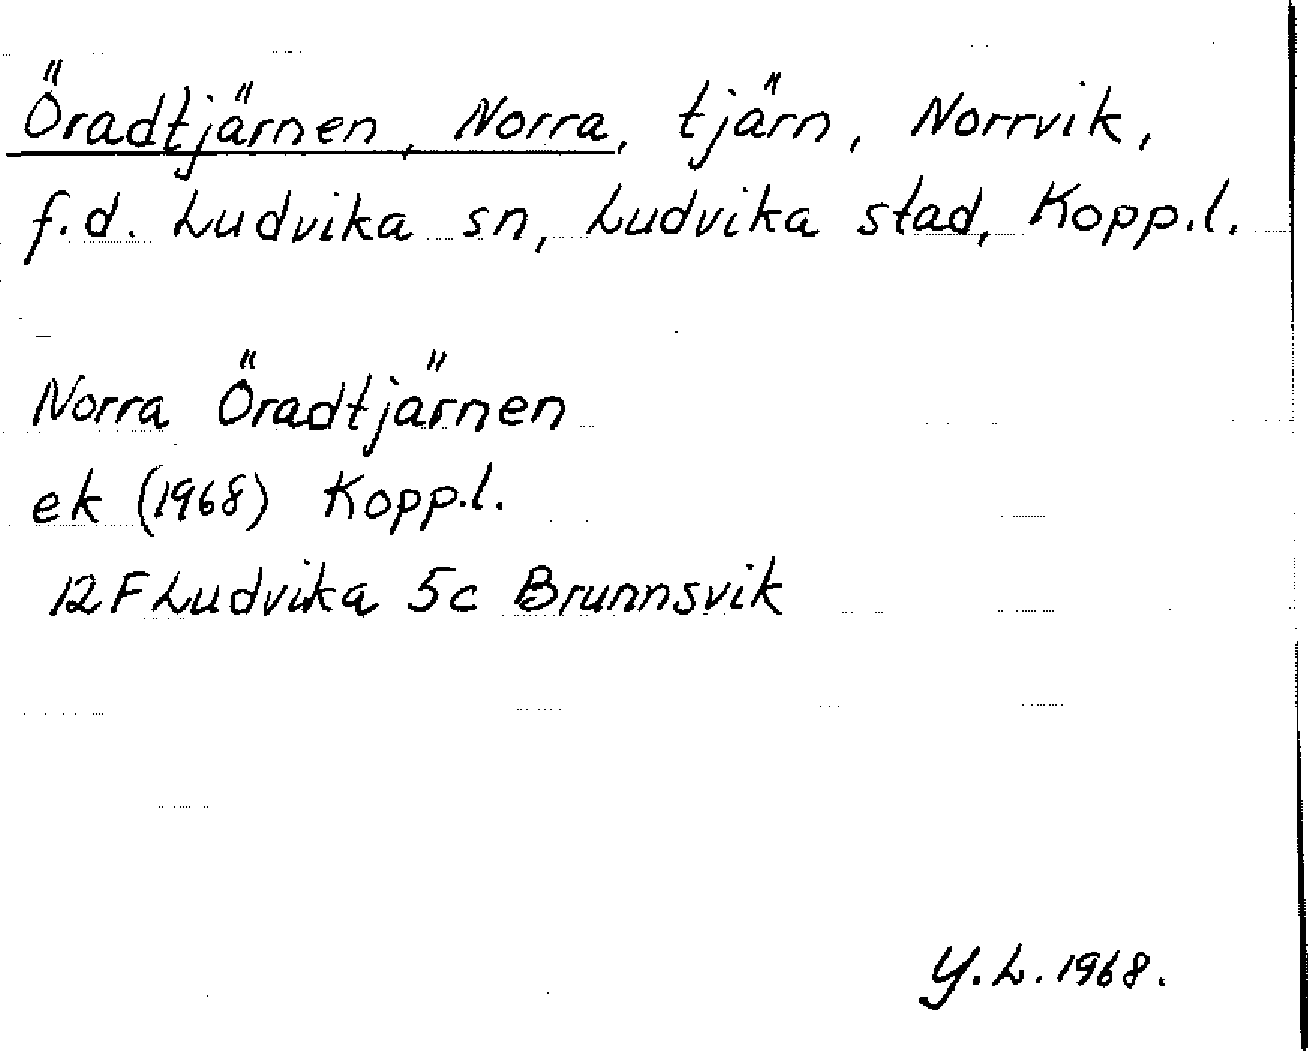 Öradtjärnen, Norra, tjärn, Norrvik,
f.d. Ludvika sn, Ludvika stad, Kopp.l.
Norra Öradtjärnen
ek (1968) Kopp.l.
12F Ludvika 5c Brunnsvik
Y.L. 1968.